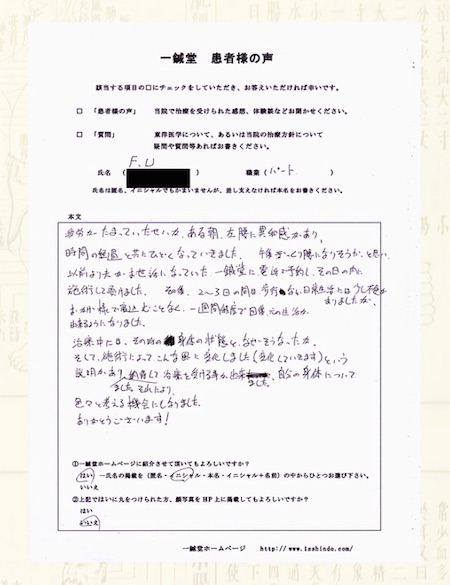 一鍼堂 患者様の声
該当する項目の□にチェックをしていただき、お答えいただければ幸いです。
□ 「患者様の声」 当院で治療を受けられた感想、体験談などお聞かせください。
□ 「質問」 東洋医学について、あるいは当院の治療方針について
疑問や質問等あればお書きください。
F.U
氏名 ( ) 職業 ( パート )
氏名は匿名、イニシャルでもかまいませんが、差し支えなければ本名をお書きください。
本文
疲労がたまっていたせいか、ある朝、左腰に異和感があり、
時間の経過と共にひどくなっていきました。 ぎっくり腰になりそうか、と思い
以前より夫がお世話になっていた一鍼堂に電話予約し、その日の内に
施術して頂けました。 その後、2〜3日の間は 日常生活には少し不便が
ありましたが、
なく、一週間程度で回復、元の生活が
出来るようになりました。
治療中には、その時の身体の状態と、なぜそうなったか、
そして、施術によってこんな風に変化しました(変化していきます)という
説明があり、納得して治療を受ける事が出来
ました。それにより、自分の身体について
色々と考える機会にもなりました。
ありがとうございます!
①一鍼堂ホームページに紹介させて頂いてもよろしいですか?
はい ―氏名の掲載を (匿名・イニシャル・本名・イニシャル+名前) の中からひとつお選び下さい。
いいえ
②上記ではいに丸をつけられた方、顔写真をHP上に掲載してもよろしいですか?
はい
いいえ
一鍼堂ホームページ http://www.1sshindo.com/